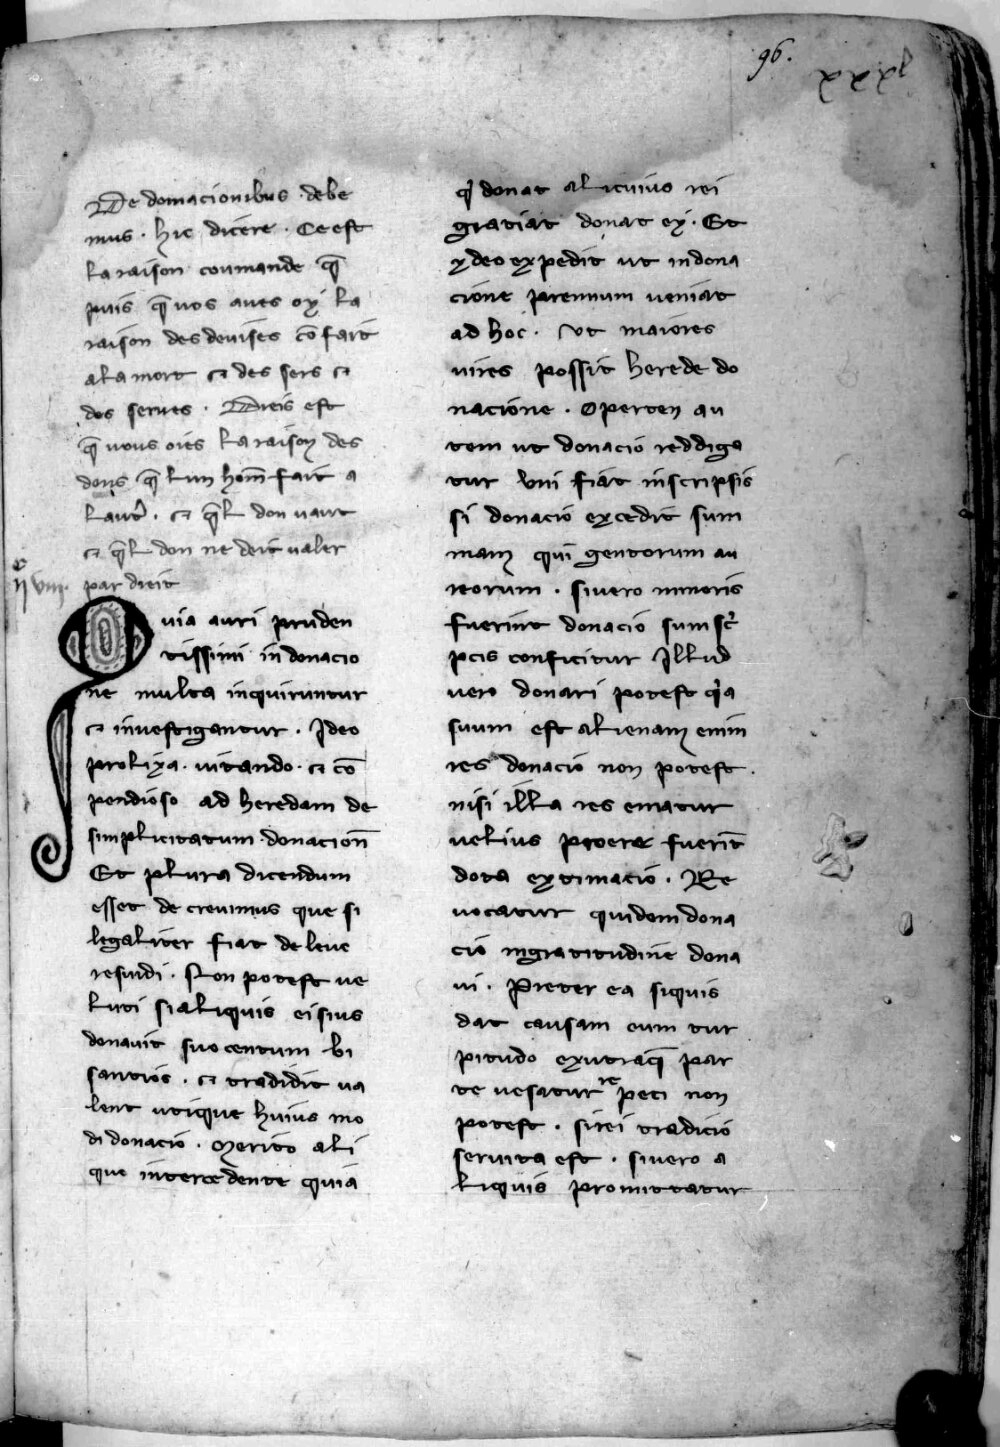 96.
xxxl
De domacionibus debe
mus . hic dicere . Ce est
la raison coumande q̅
puis q̅ vos aves oy la
raison des devises cō fait
a la mort et des sers et
des serves . Dreis est
q̅ vous oies la raison des
dons q̅ lun hom̅ fait a
laut͛ . et q̅l don vaut
et q̅l don ne deit valer
par dreit
Quia auri pruden
tissimi in donacio
ne multa inquiruntur
et investigantur . Ideo
prolixa . vitando . et cō
pendioso ad heredam de
simplicitatum donacion̅
Et plura dicendum
esset de crevimus que si
legaliter fiat de leve
resindi . Non potest ve
luti si aliquis ei sius
donavit suo centum bi
santios . et tradidit va
lent utique huius mo
di donacio . Merito ali
que intercedente quia
q̇ donat alicuius rei
gratiat donat ey . Et
ydeo expedit ut in dona
cione premium veniat
ad hoc . Vt maiores
vires possit herede do
nacione . Operten au
tem ut donacio reddiga
tur vni fiat inscripsis
si donacio excedit sum
mam qui gentorum au
reorum . si vero minoris
fuerint donacio sum sc͛
pcis conficitur Illud
vero donari potest q̇a
suum est alienam enim
res donacio non potest .
nisi illa res ematur
velius ptoere fuerit̅
dota extimacio . Re
vocatur quidem dona
cio ingratitudine dona
vi . Preter ea siquis
dat causam eum tur
pitudo exutraq̅ par
te vesatur re peci non
potest . si rei tradicio
servita est . si vero a
liquis promittatur